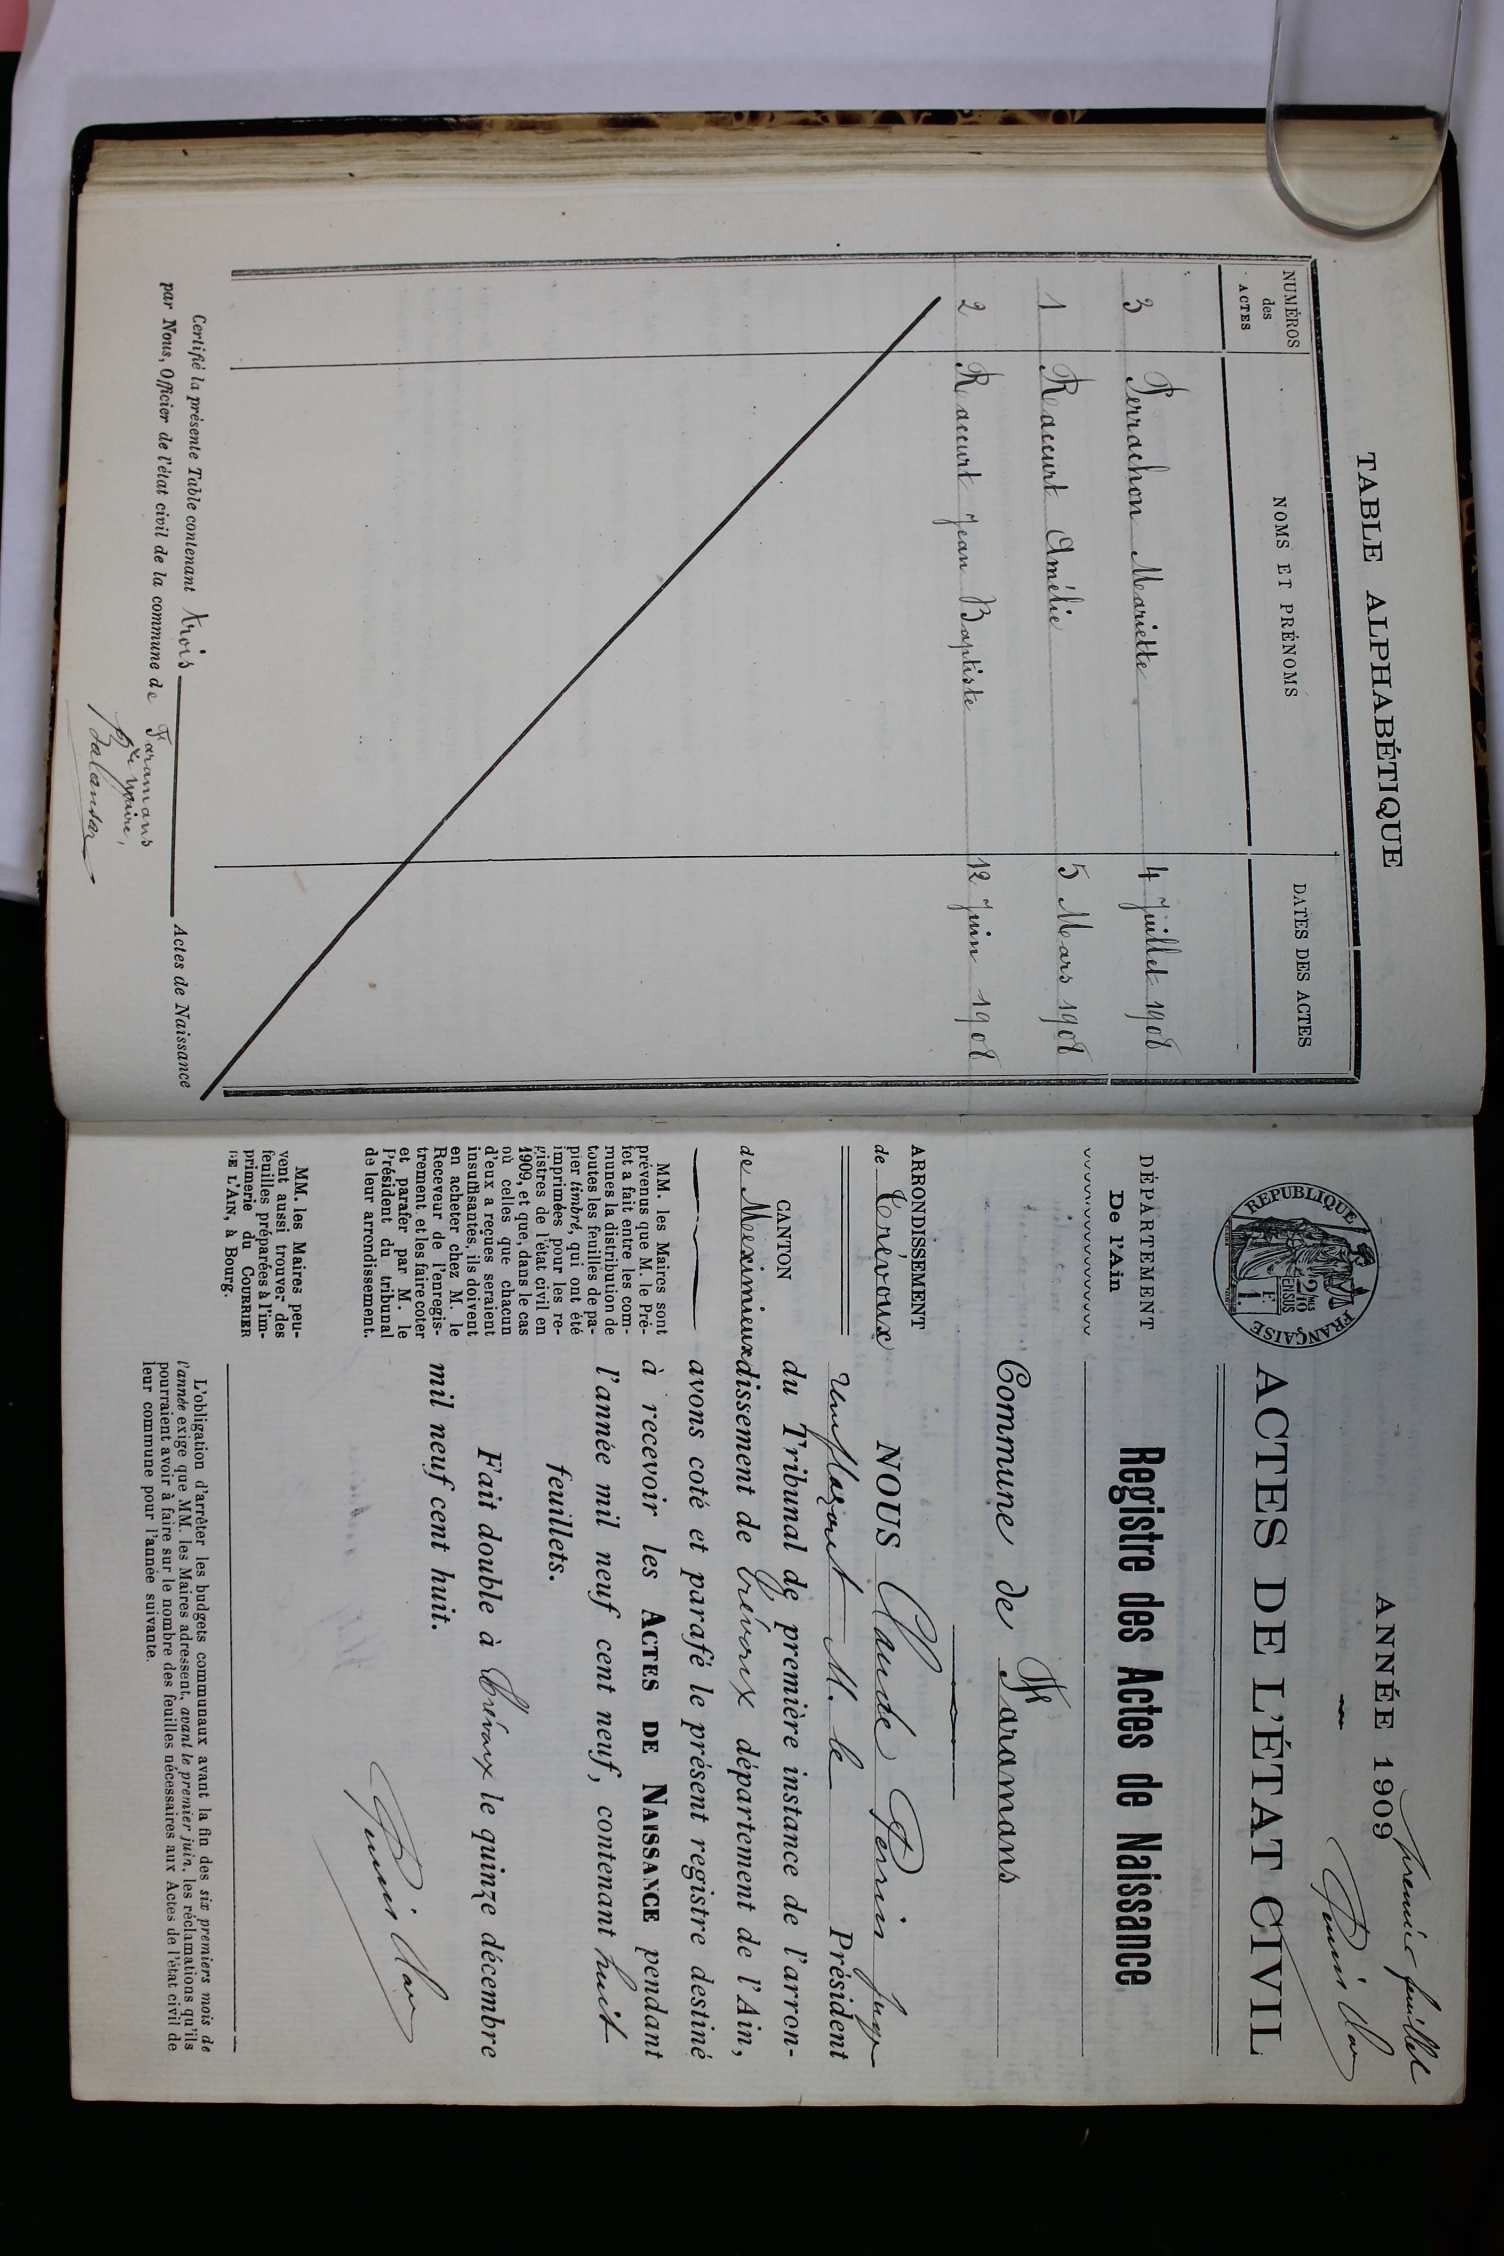 TABLE ALPHABÉTIQUE
NUMÉROS des ACTES
NOMS ET PRÉNOMS
DATES DES ACTES
3 Perrachon Mariette 4 Juillet 1908
1 Réaccurt Amélie 5 Mars 1908
2 Réaccurt Jean Baptiste 12 Juin 1908
Certifié la présente Table contenant trois Actes de Naissance
par Nous, Officier de l'état civil de la commune de Faramans
Le Maire,
premier feuillet
ANNÉE 1909
REPUBLIQUE FRANÇAISE
2/10 EN SUS
1 F.
ACTES DE L'ÉTAT CIVIL
DÉPARTEMENT
De l'Ain
Registre des Actes de Naissance
Commune de Faramans
ARRONDISSEMENT
de Trévoux
CANTON
de Meximieux
MM. les Maires sont
prévenus que M. le Pré-
fet a fait entre les com-
munes la distribution de
toutes les feuilles de pa-
pier timbré, qui ont été
imprimées pour les re-
gistres de l'état civil en
1909, et que, dans le cas
où celles que chacun
d'eux a reçues seraient
insuffisantes, ils doivent
en acheter chez M. le
Receveur de l'enregis-
trement, et les faire coter
et parafer par M. le
Président du tribunal
de leur arrondissement.
MM. les Maires peu-
vent aussi trouver des
feuilles préparées à l'im-
primerie du COURRIER
DE L'AIN, à Bourg.
NOUS Claude Perrin Juge
remplaçant M. le Président
du Tribunal de première instance de l'arron-
dissement de Trévoux département de l'Ain,
avons coté et parafé le présent registre destiné
à recevoir les ACTES DE NAISSANCE pendant
l'année mil neuf cent neuf, contenant huit
feuillets.
Fait double à Trévoux le quinze décembre
mil neuf cent huit.
L'obligation d'arrêter les budgets communaux avant la fin des six premiers mois de
l'année exige que MM. les Maires adressent, avant le premier juin, les réclamations qu'ils
pourraient avoir à faire sur le nombre des feuilles nécessaires aux Actes de l'état civil de
leur commune pour l'année suivante.